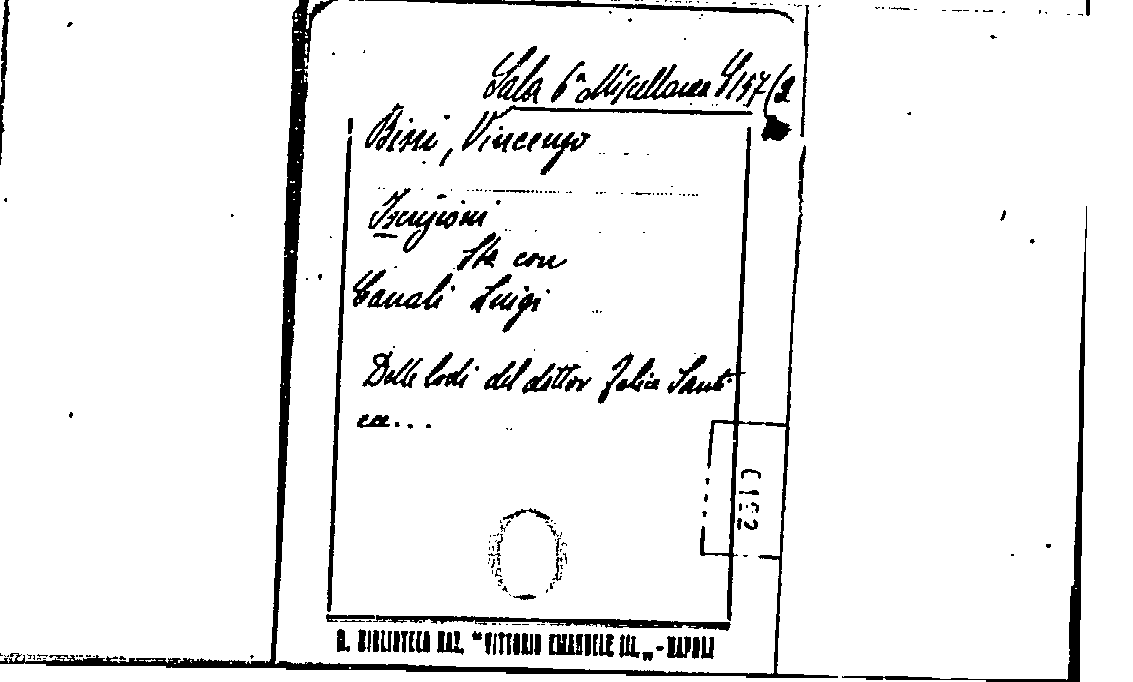 Sala 6ª Miscellanea 4157(2
Bini, Vincenzo
Iscrizioni
Sta con
Canali Luigi
Delle lodi del dottor Felice Santi
ecc...
R. BIBLIOTECA NAZ. "VITTORIO EMANUELE III„ - NAPOLI